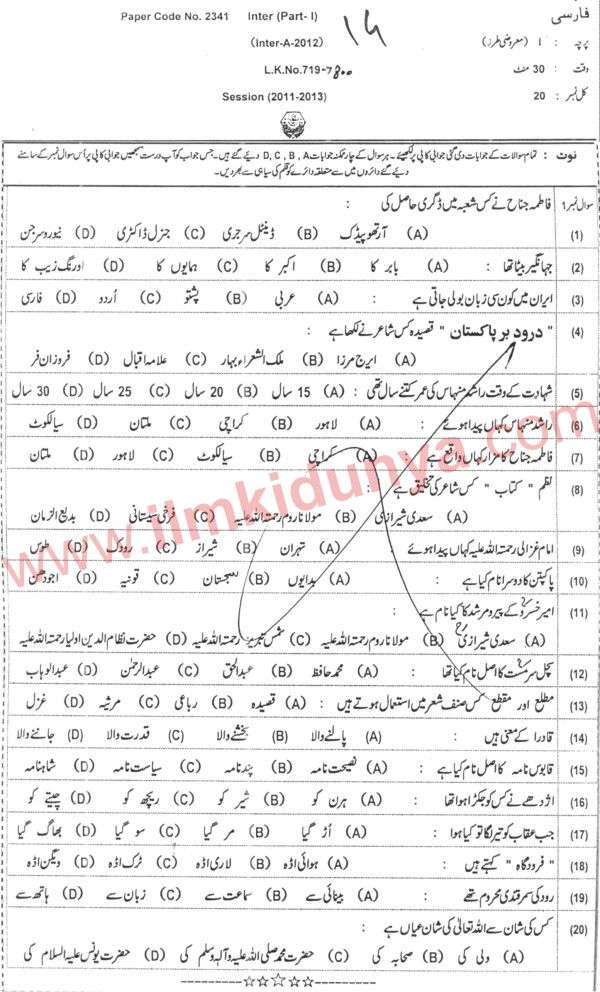 Paper Code No. 2341 Inter (Part- I) فارسی
(Inter-A-2012) 14 پرچہ : I (معروضی طرز)
L.K.No.719-7800 وقت : 30 منٹ
Session (2011-2013) کل نمبر : 20
نوٹ : تمام سوالات کے جوابات دی گئی جوابی کاپی پر لکھیئے ۔ ہر سوال کے چار ممکنہ جوابات D , C , B , A دیئے گئے ہیں۔ جس جواب کو آپ درست سمجھیں جوابی کاپی پر اُس سوال نمبر کے سامنے
دیئے گئے دائروں میں سے متعلقہ دائرے کو قلم کی سیاہی سے بھر دیں۔
سوال نمبر 1 فاطمہ جناح نے کس شعبہ میں ڈگری حاصل کی
(1) (A) آرتھوپیڈک (B) ڈینٹل سرجری (C) جنرل ڈاکٹری (D) نیوروسرجن
(2) جہانگیر بیٹا تھا : (A) بابر کا (B) اکبر کا (C) ہمایوں کا (D) اورنگ زیب کا
(3) ایران میں کون سی زبان بولی جاتی ہے : (A) عربی (B) پشتو (C) اُردو (D) فارسی
(4) " درود بر پاکستان " قصیدہ کس شاعر نے لکھا ہے :
(A) ایرج مرزا (B) ملک الشعراء بہار (C) علامہ اقبال (D) فروزان فر
(5) شہادت کے وقت راشد منہاس کی عمر کتنے سال تھی : (A) 15 سال (B) 20 سال (C) 25 سال (D) 30 سال
(6) راشد منہاس کہاں پیدا ہوئے : (A) لاہور (B) کراچی (C) ملتان (D) سیالکوٹ
(7) فاطمہ جناح کا مزار کہاں واقع ہے : (A) کراچی (B) سیالکوٹ (C) لاہور (D) ملتان
(8) نظم " کتاب " کس شاعر کی تخلیق ہے :
(A) سعدی شیرازی (B) مولانا روم رحمتہ اللہ علیہ (C) فرخی سیستانی (D) بدیع الزمان
(9) امام غزالی رحمتہ اللہ علیہ کہاں پیدا ہوئے : (A) تہران (B) شیراز (C) رودک (D) طوس
(10) پاکپتن کا دوسرا نام کیا ہے : (A) بدایوں (B) سجستان (C) قونیہ (D) اجودھن
(11) امیر خسرو کے پیر و مرشد کا کیا نام ہے :
(A) سعدی شیرازی (B) مولانا روم رحمتہ اللہ علیہ (C) شمس تبریز رحمتہ اللہ علیہ (D) حضرت نظام الدین اولیا رحمتہ اللہ علیہ
(12) سچل سرمست کا اصل نام کیا تھا : (A) محمد حافظ (B) عبدالحق (C) عبدالرحمٰن (D) عبدالوہاب
(13) مطلع اور مقطع کس صنف شعر میں استعمال ہوتے ہیں : (A) قصیدہ (B) رباعی (C) مرثیہ (D) غزل
(14) قادرا کے معنی ہیں : (A) پالنے والا (B) بخشنے والا (C) قدرت والا (D) جاننے والا
(15) قابوس نامہ کا اصل نام کیا ہے : (A) نصیحت نامہ (B) پند نامہ (C) سیاست نامہ (D) شاہنامہ
(16) اژدھے نے کس کو جکڑا ہوا تھا : (A) ہرن کو (B) شیر کو (C) ریچھ کو (D) چیتے کو
(17) جب عقاب کو تیر لگا تو کیا ہوا : (A) اُڑ گیا (B) مر گیا (C) سو گیا (D) بھاگ گیا
(18) " فرودگاہ " کہتے ہیں : (A) ہوائی اڈہ (B) لاری اڈہ (C) ٹرک اڈہ (D) ویگن اڈہ
(19) رودکی سمرقندی محروم تھے : (A) بینائی سے (B) سماعت سے (C) زبان سے (D) ہاتھ سے
(20) کس کی شان سے اللہ تعالیٰ کی شان عیاں ہے :
(A) ولی کی (B) صحابہ کی (C) حضرت محمد صلی اللہ علیہ وآلہ وسلم کی (D) حضرت یونس علیہ السلام کی
www.ilmkidunya.com